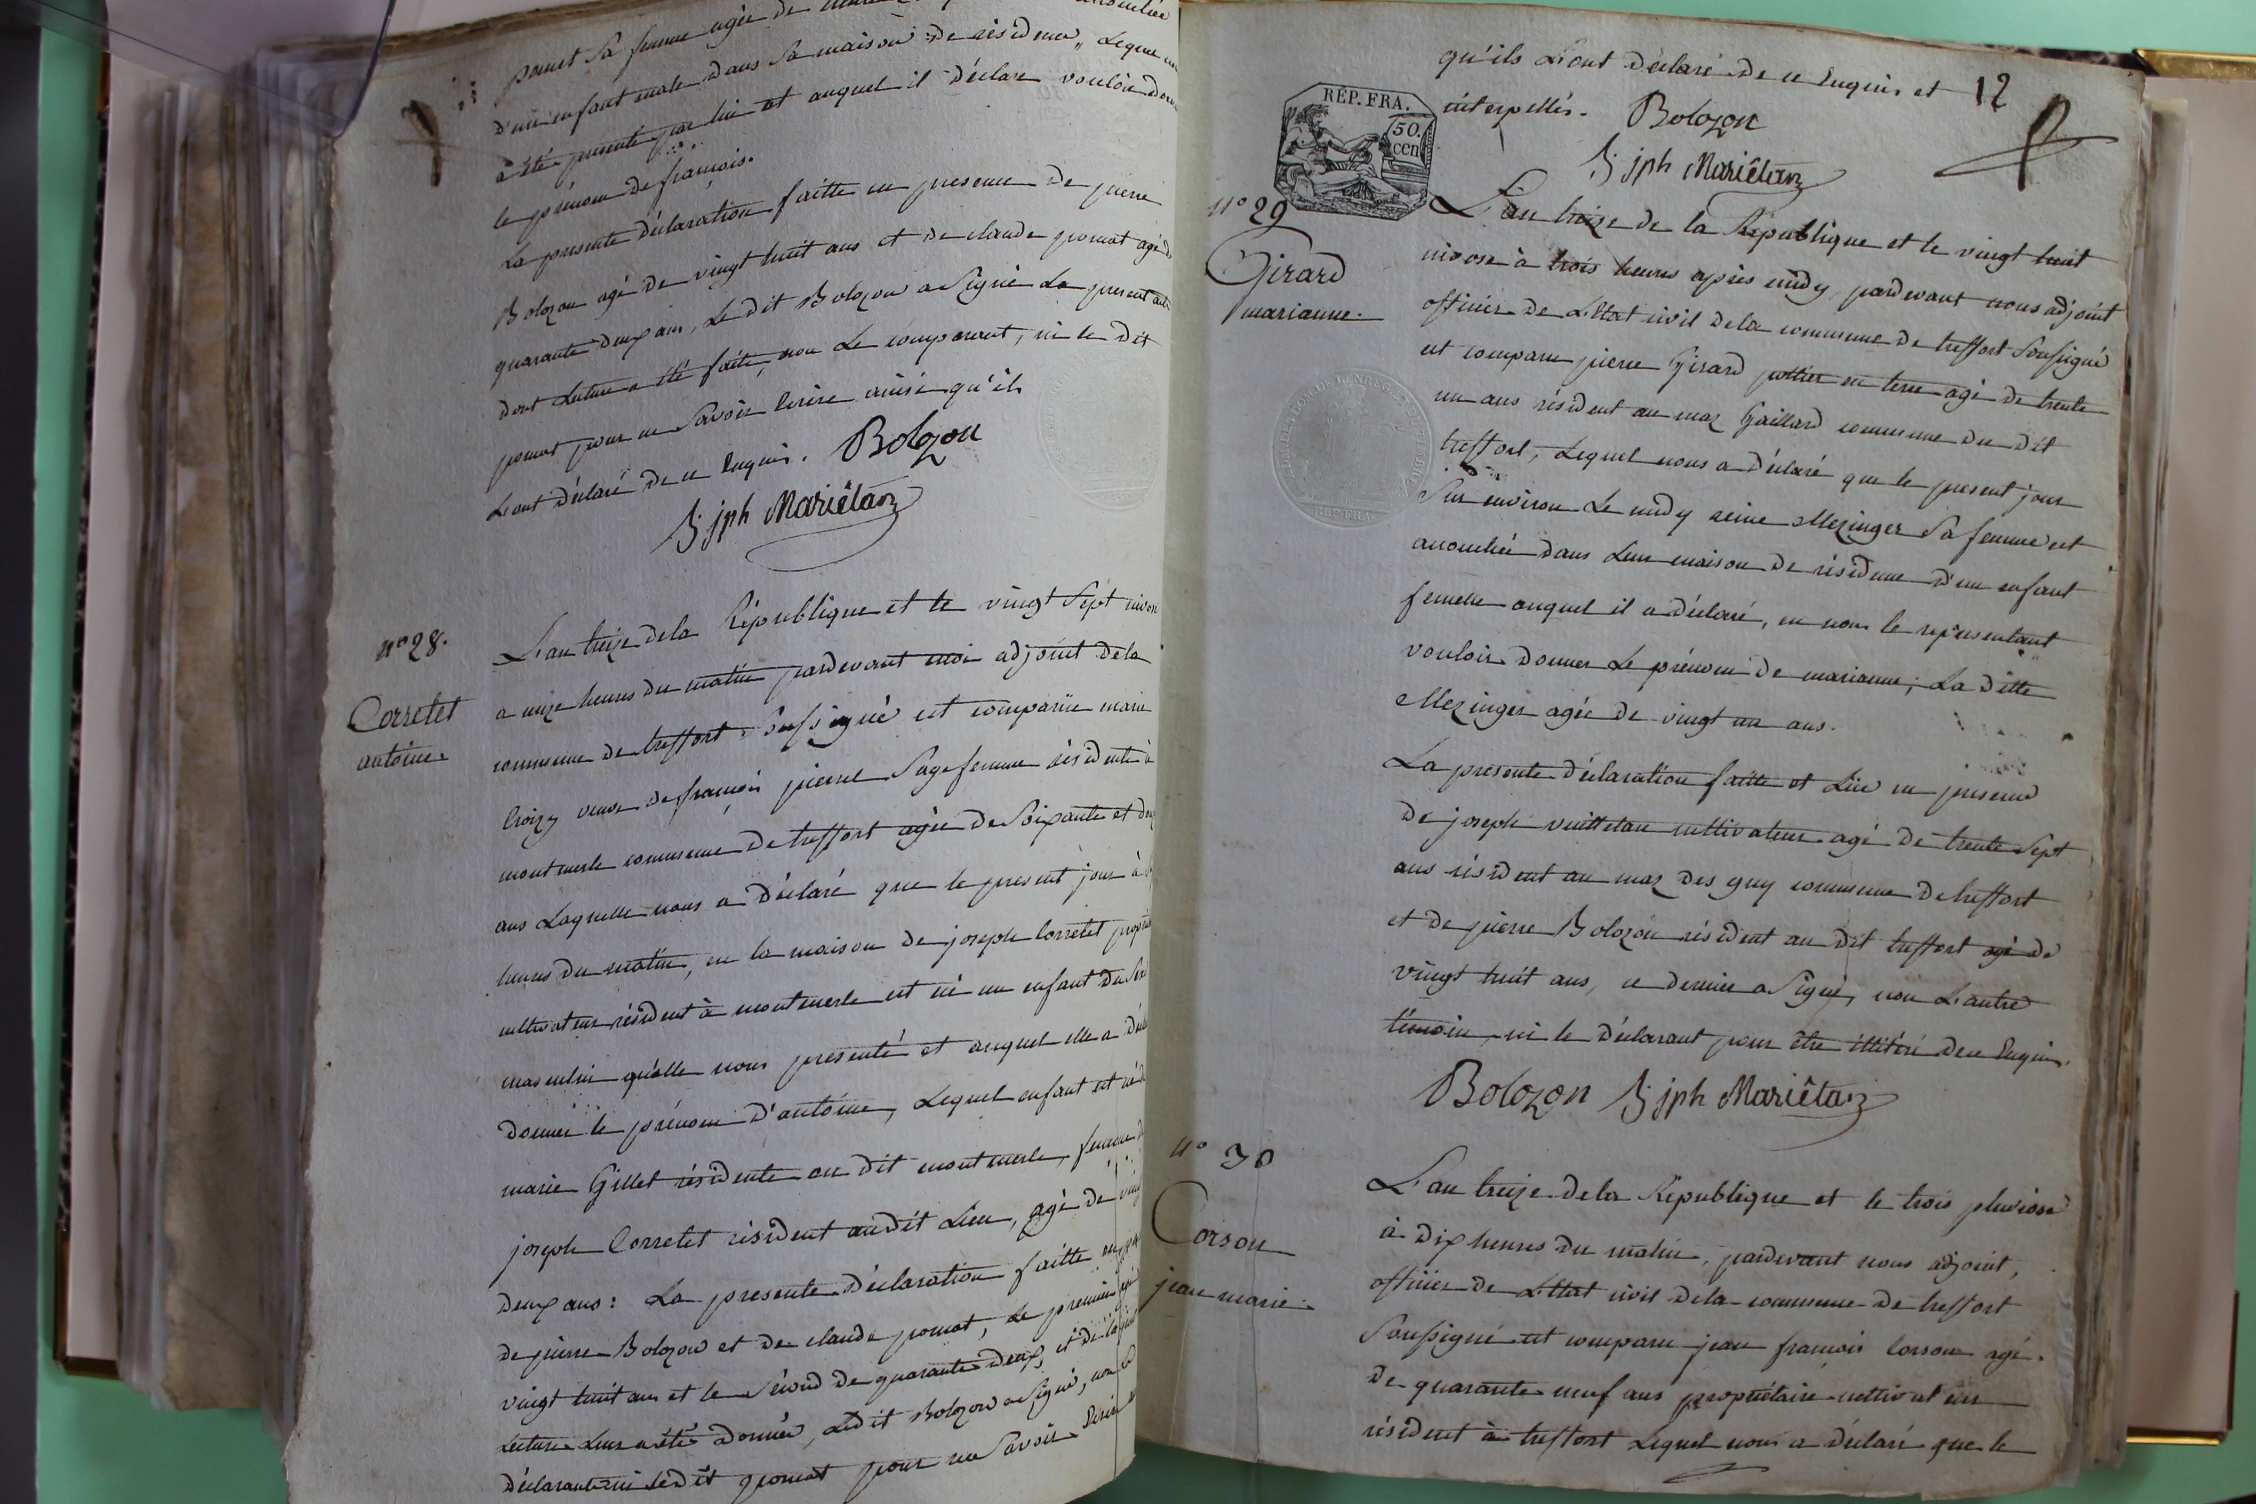 pomet sa femme agée de
d'un enfant male dans sa maison de résidence, Lequel
a été presenté par lui et auquel il déclare vouloir donner
le prénom de françois.
La presente déclaration faitte en presence de pierre
Bolozon agé de vingt huit ans et de claude pomat agé de
quarante deux ans, Le dit Bolozon a signé Le present acte
dont Lecture a été faite, non Le comparant, ni le dit
pomat pour ne savoir Ecrire ainsi qu'ils
L'ont déclaré de ce Enquis. Bolozon
jph Mariêtan
n° 28.
Corretet
antoine
L'an treize de la République et le vingt sept nivose
a onze heures du matin pardevant moi adjoint de la
commune de treffort soussigné est comparüe marie
Croizy veuve de françois pierre sage femme résidente à
montmerle commune de treffort agée de soixante et deux
ans Laquelle nous a déclaré que le present jour à
heures du matin, en la maison de joseph Corretet propriétaire
cultivateur résident à montmerle est né un enfant du sexe
masculin qu'elle nous presenté et auquel elle a déclaré
donner le prénom d'antoine, Lequel enfant est né de
marie Gillet résidente au dit montmerle, femme de
joseph Corretet résident audit Lieu, agé de vingt
deux ans: La presente déclaration faitte en
de pierre Bolozon et de claude pomat, Le premier agé
vingt huit ans et le second de quarante deux, et de la
Lecture Leur a été donnée, Ledit Bolozon a signé, non
déclarante ni ledit pomat pour ne savoir Ecrire
qu'ils L'ont déclaré de ce Enquis et
12
interpellés. Bolozon
jph Mariêtan
RÉP. FRA.
50.
cen
n° 29
Girard
marianne.
L'an treize de la République et le vingt huit
nivose à trois heures après midy, pardevant nous adjoint
officier de L'Etat civil de la commune de treffort soussigné
est comparu pierre Girard pottier en terre agé de trente
un ans résident au maz Gaillard commune du dit
treffort, Lequel nous a déclaré que le present jour
sur environ Le midy reine Mezinger sa femme est
accouchée dans Leur maison de résidence d'un enfant
femelle auquel il a déclaré, en nous le representant
vouloir donner Le prénom de marianne; La ditte
Mezinger agée de vingt un ans.
La presente déclaration faitte et Lüe en presence
de joseph vuitteton cultivateur agé de trente sept
ans résident au maz des guy commune de treffort
et de pierre Bolozon résident au dit treffort agé de
vingt huit ans, ce dernier a signé, non L'autre
témoin, ni le déclarant pour être illitéré de ce Enquis.
Bolozon jph Mariêtan
n° 30
Corson
jean marie.
L'an treize de la République et le trois pluviose
à dix heures du matin, pardevant nous adjoint,
officier de L'Etat civil de la commune de treffort
soussigné est comparu jean françois Corson agé
de quarante neuf ans propriétaire cultivateur
résident à treffort Lequel nous a déclaré que le